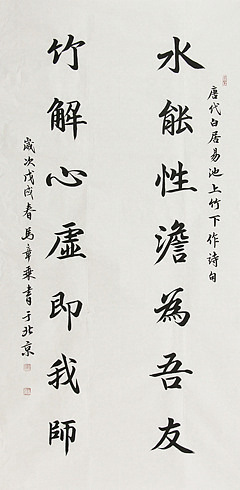 唐代白居易池上竹下作诗句
水能性澹為吾友
竹解心虛即我師
歲次戊戌春馬章乘書于北京